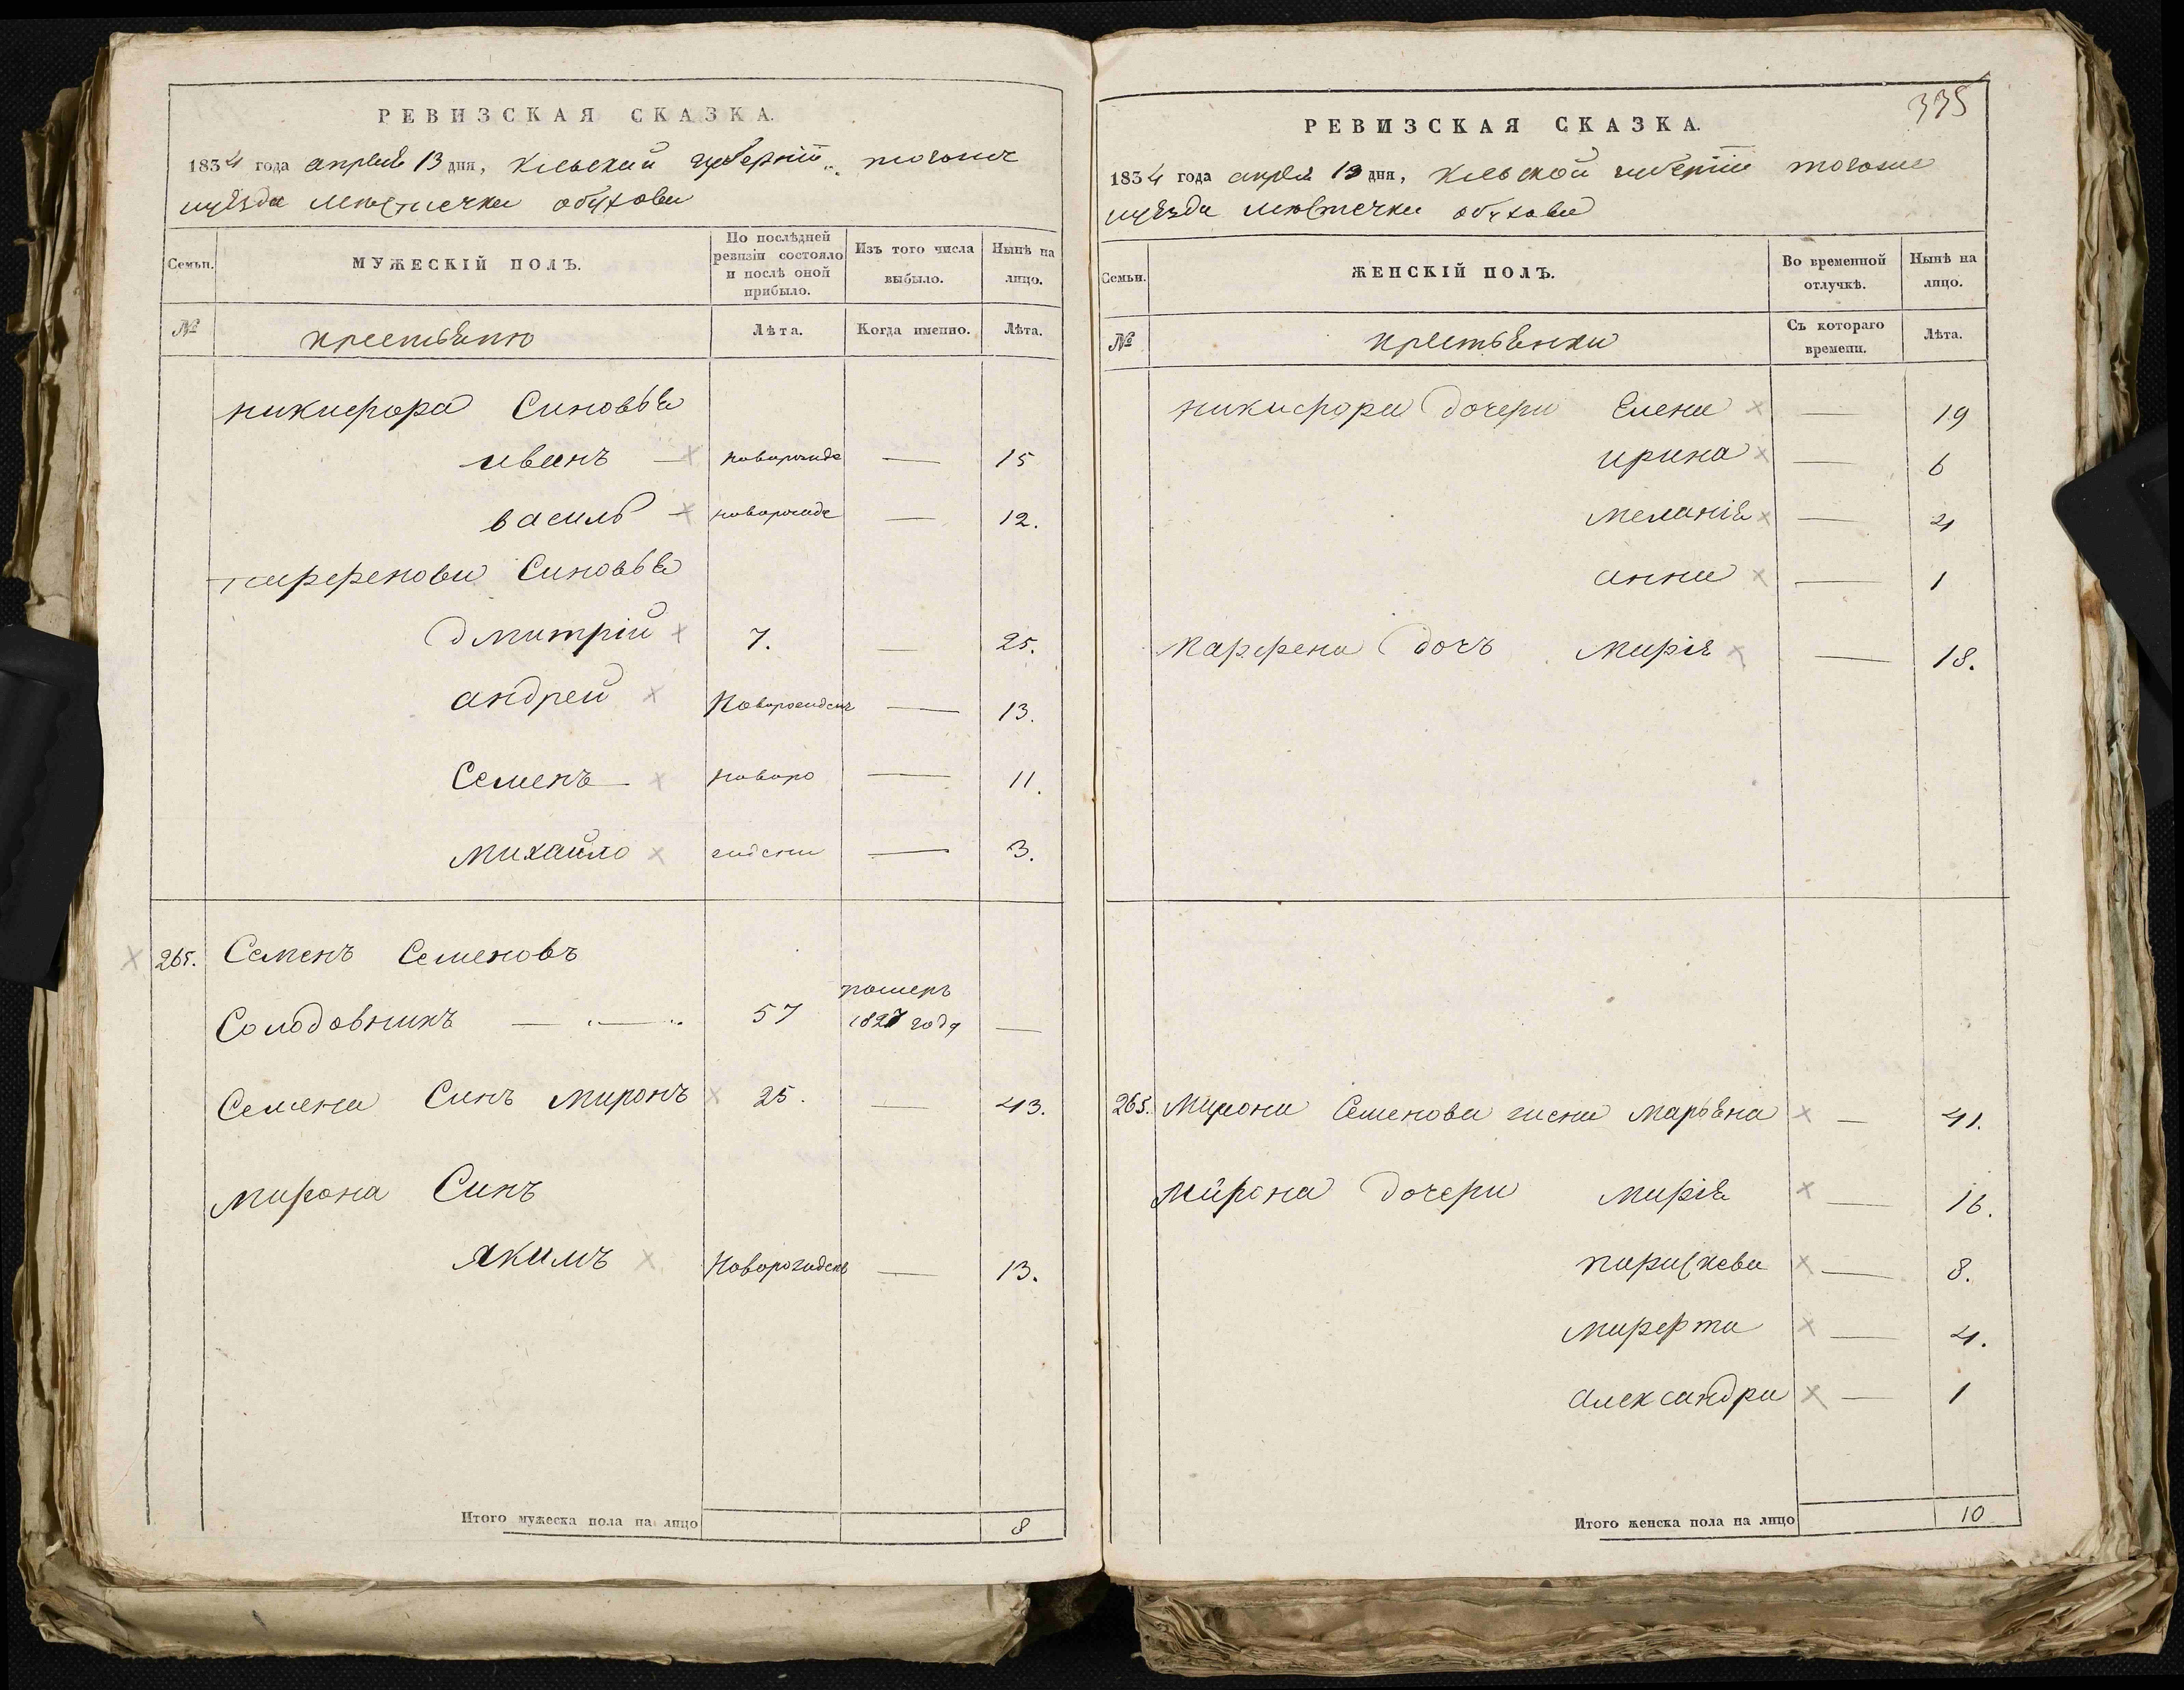 РЕВИЗСКАЯ СКАЗКА.
1834 года апреля 13 дня, Кіевской губерніи тогоже
уѣзда местечка обухова
Семьи.
МУЖЕСКІЙ ПОЛЪ.
По послѣдней ревизіи состояло и послѣ оной прибыло.
Изъ того числа выбыло.
Нынѣ на лицо.
№
крестьяне
Лѣта.
Когда именно.
Лѣта.
никифора Синовья
иванъ новорожде — 15
василь новорожде — 12.
парференова Синовья
дмитрій 7. — 25.
андрей Новорожденъ — 13.
Семенъ новоро — 11.
михайло ждени — 3.
265. Семенъ Семеновъ
померъ
Солодовникъ — 57 1827 году —
Семена Синъ миронъ 25. — 43.
мирона Синъ
якимъ Новорожденъ — 13.
Итого мужеска пола на лицо 8
335
РЕВИЗСКАЯ СКАЗКА.
1834 года апреля 13 дня, Кіевской губерніи тогоже
уѣзда местечка обухова
Семьи.
ЖЕНСКІЙ ПОЛЪ.
Во временной отлучкѣ.
Нынѣ на лицо.
№
крестьянки
Съ котораго времени.
Лѣта.
никифора дочери Елена — 19
ирина — 6
меланія — 4
анна — 1
парфена дочъ марія — 18.
265. Мирона Семенова жена марьяна — 41.
мирона дочери марія — 16.
параскева — 8.
марфта — 4.
александра — 1
Итого женска пола на лицо 10